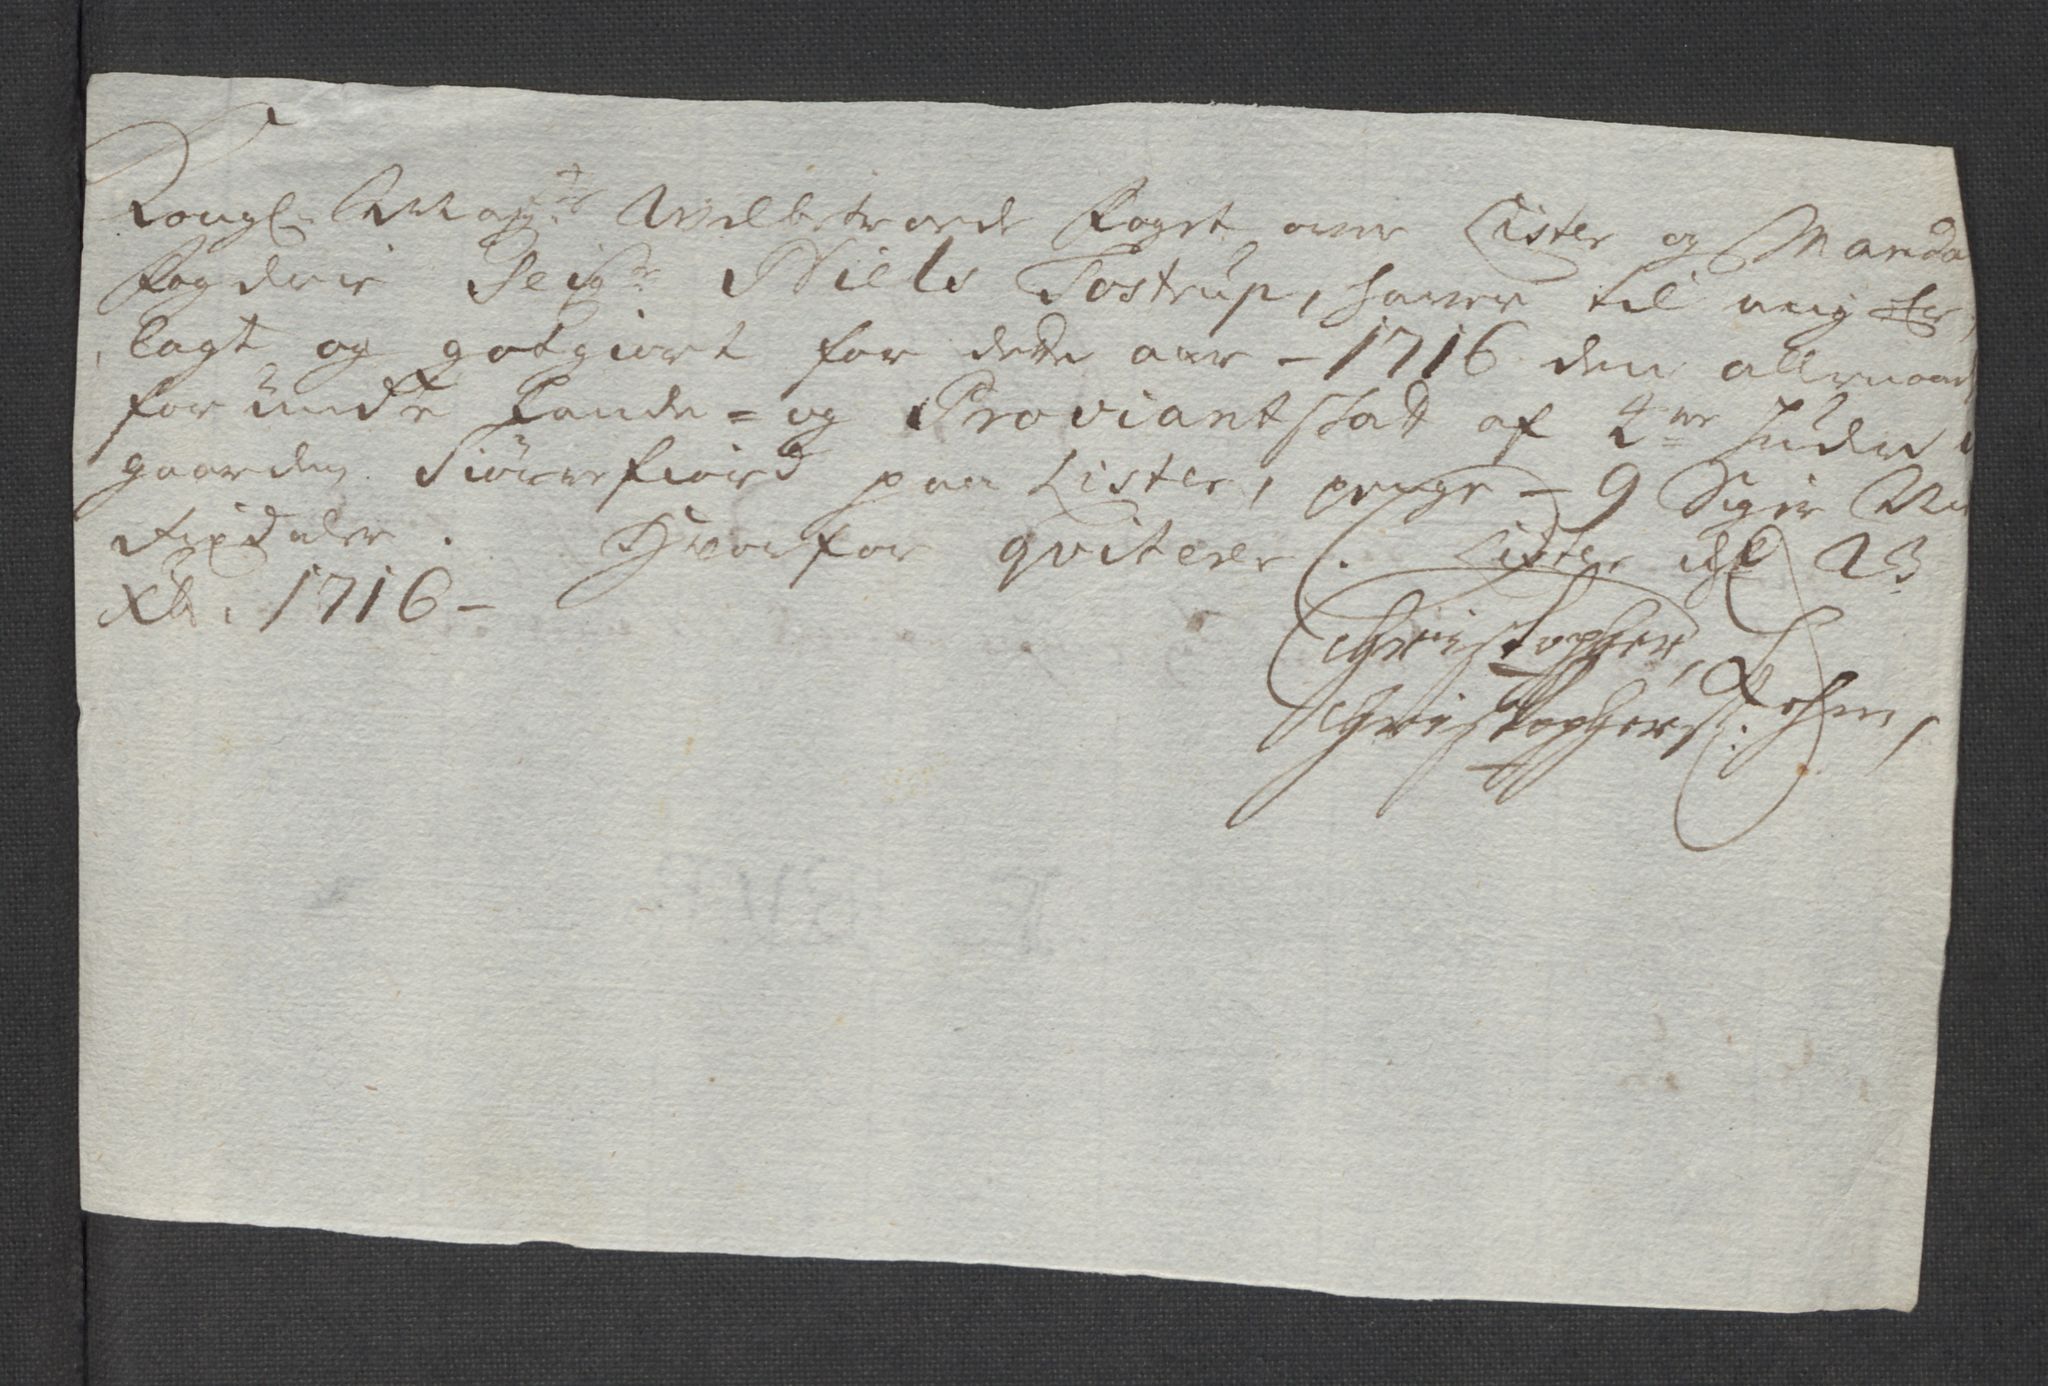 Kongl. Mayts Welbetroede Foget over Lister og Manda
Fogderie Seigr Niels Tostrup, haver til mig
lagt og gotgiort for dette aar - 1716 den allernaad
forundte Lande- og Proviantskatt af 2de
gaarden Siørefiord paa Lister, penge - 9 Siger
Rixdaler. Hvorfor qviterer. Lister 23
Xbr. 1716 -
Christopher
Christophers: